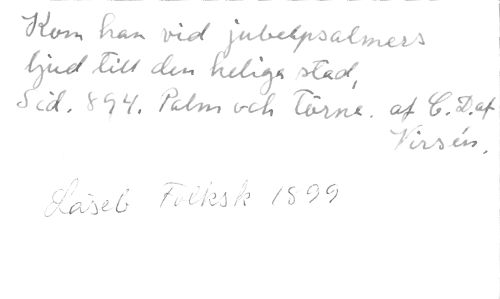 Kom han vid jubelpsalmers
ljud till den heliga stad,
Sid. 894. Palm och Törne. af C. D. af
Virsén.
Läseb Folksk 1899